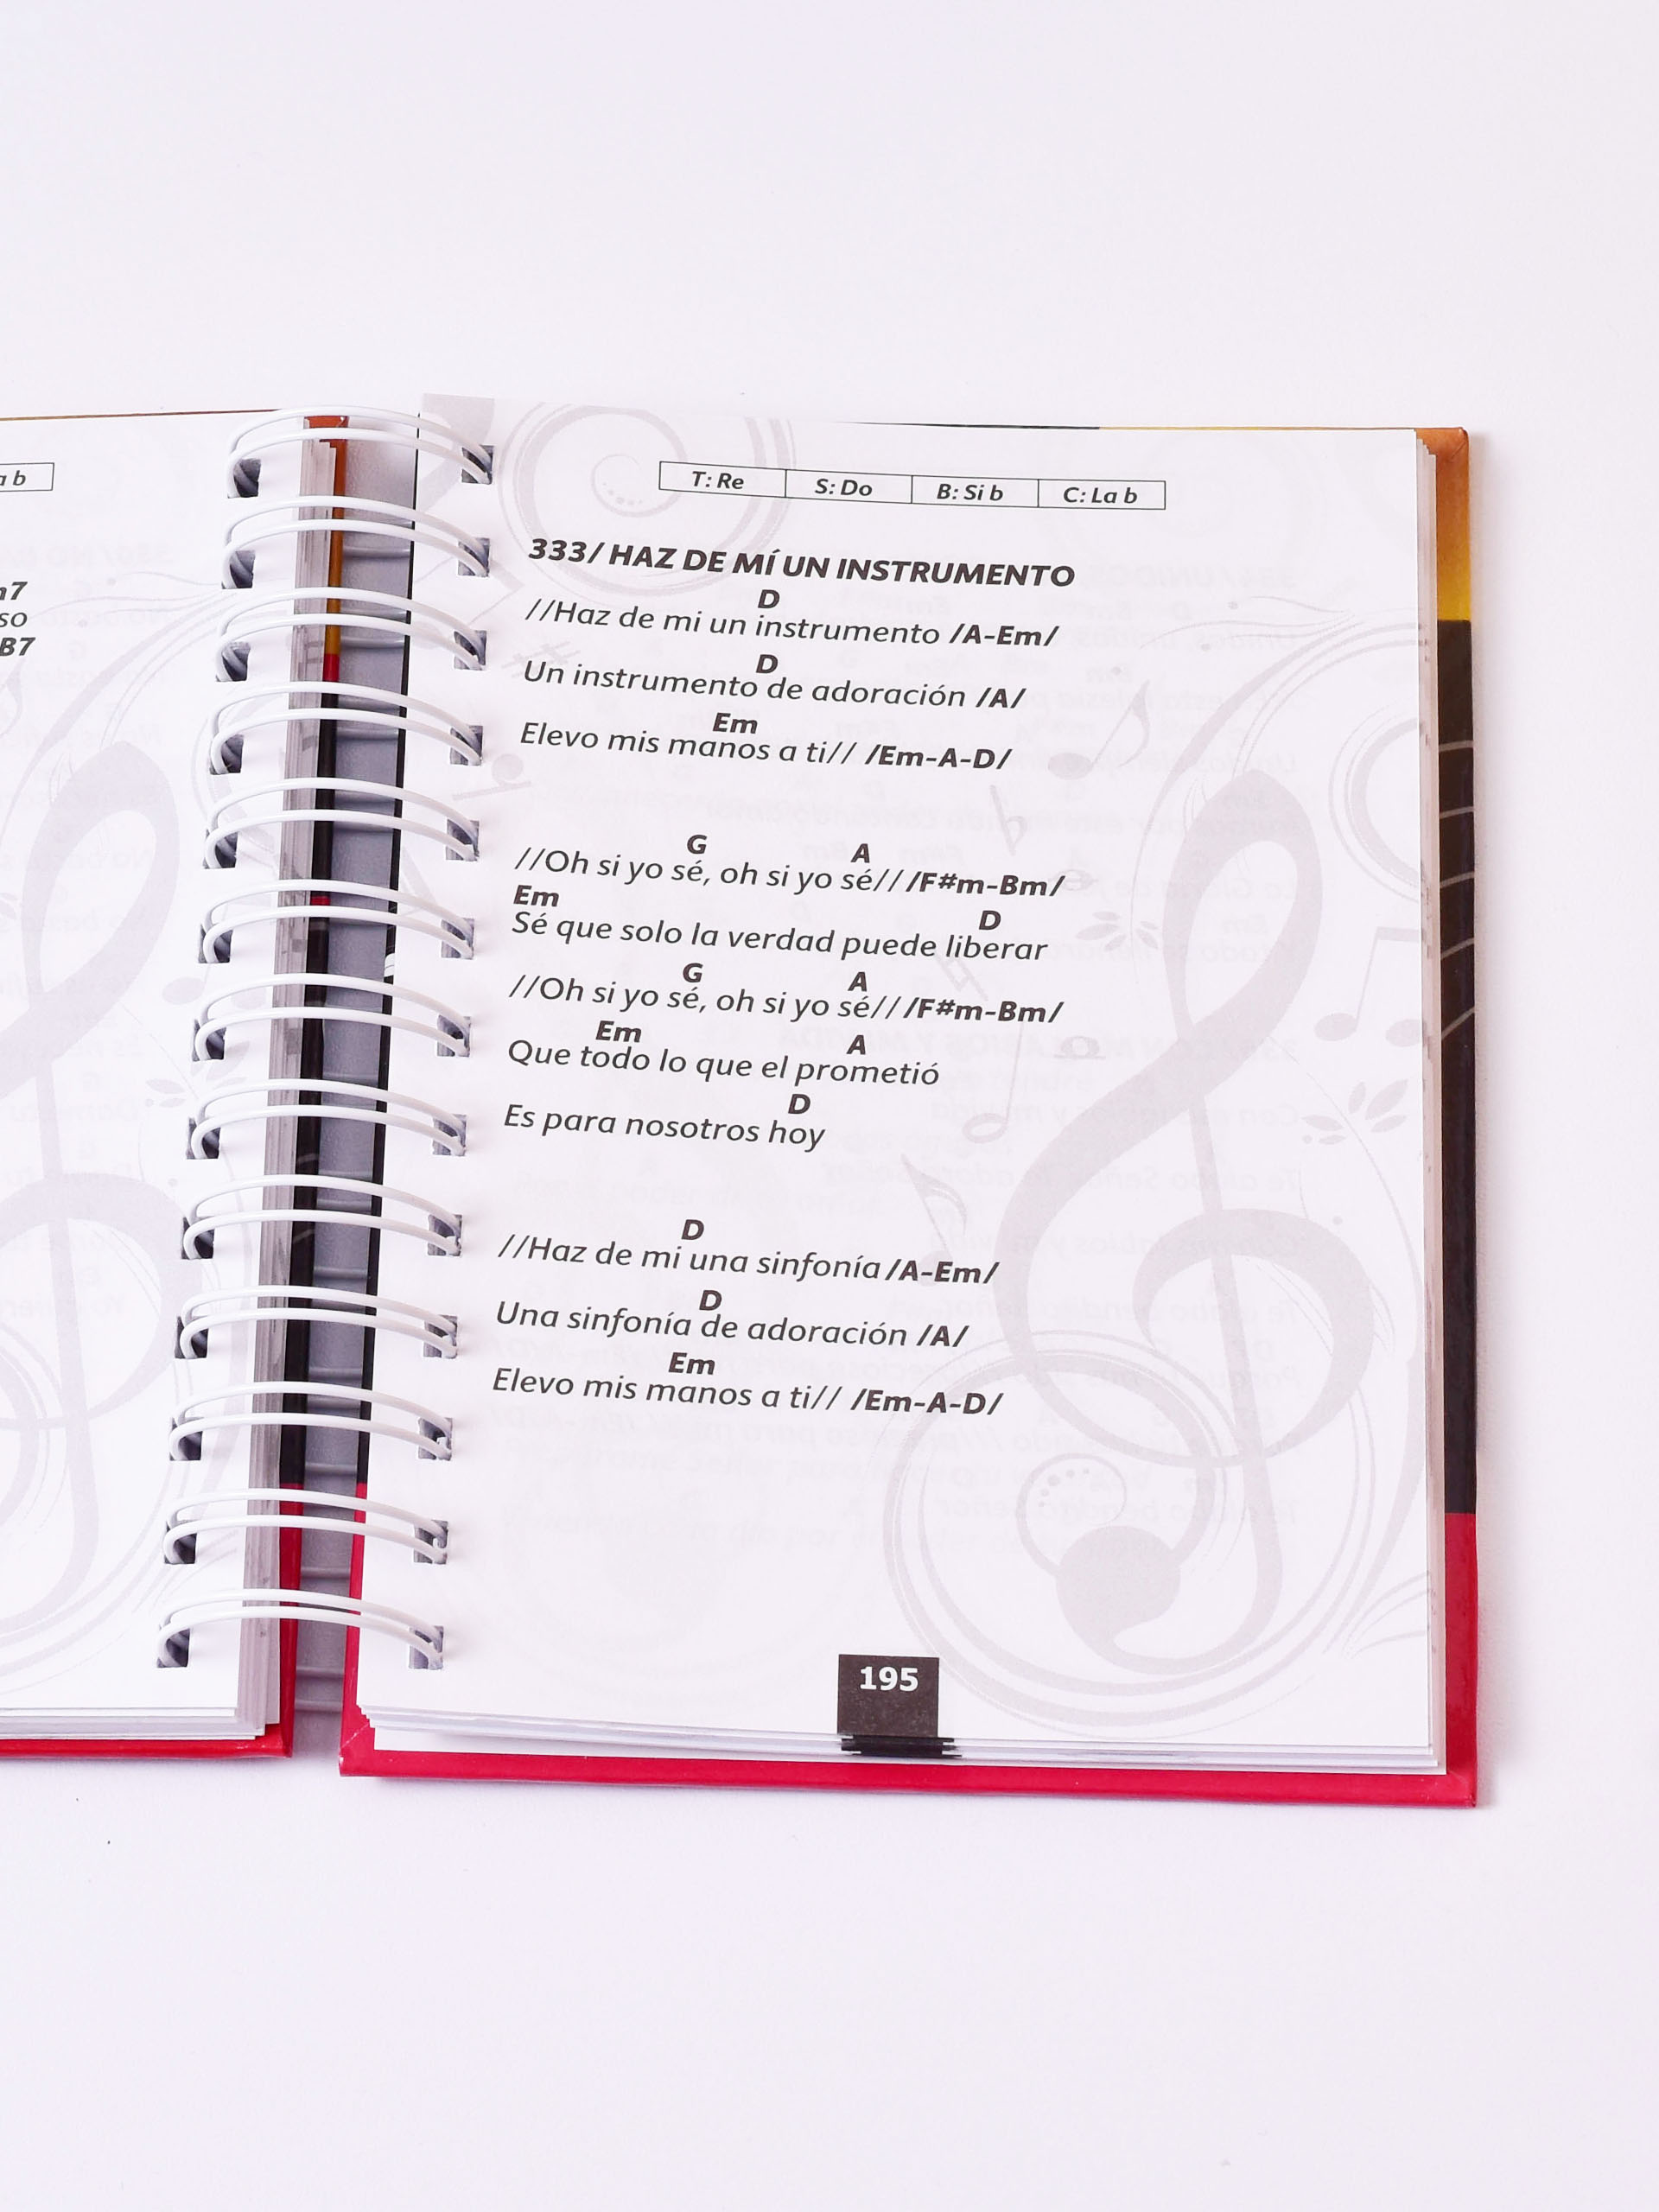 a b
n7
so
B7
T: Re S: Do B: Si b C: La b
333/ HAZ DE MÍ UN INSTRUMENTO
D
//Haz de mi un instrumento /A-Em/
D
Un instrumento de adoración /A/
Em
Elevo mis manos a ti// /Em-A-D/
G A
//Oh si yo sé, oh si yo sé// /F#m-Bm/
Em D
Sé que solo la verdad puede liberar
G A
//Oh si yo sé, oh si yo sé// /F#m-Bm/
Em A
Que todo lo que el prometió
D
Es para nosotros hoy
D
//Haz de mi una sinfonía /A-Em/
D
Una sinfonía de adoración /A/
Em
Elevo mis manos a ti// /Em-A-D/
195